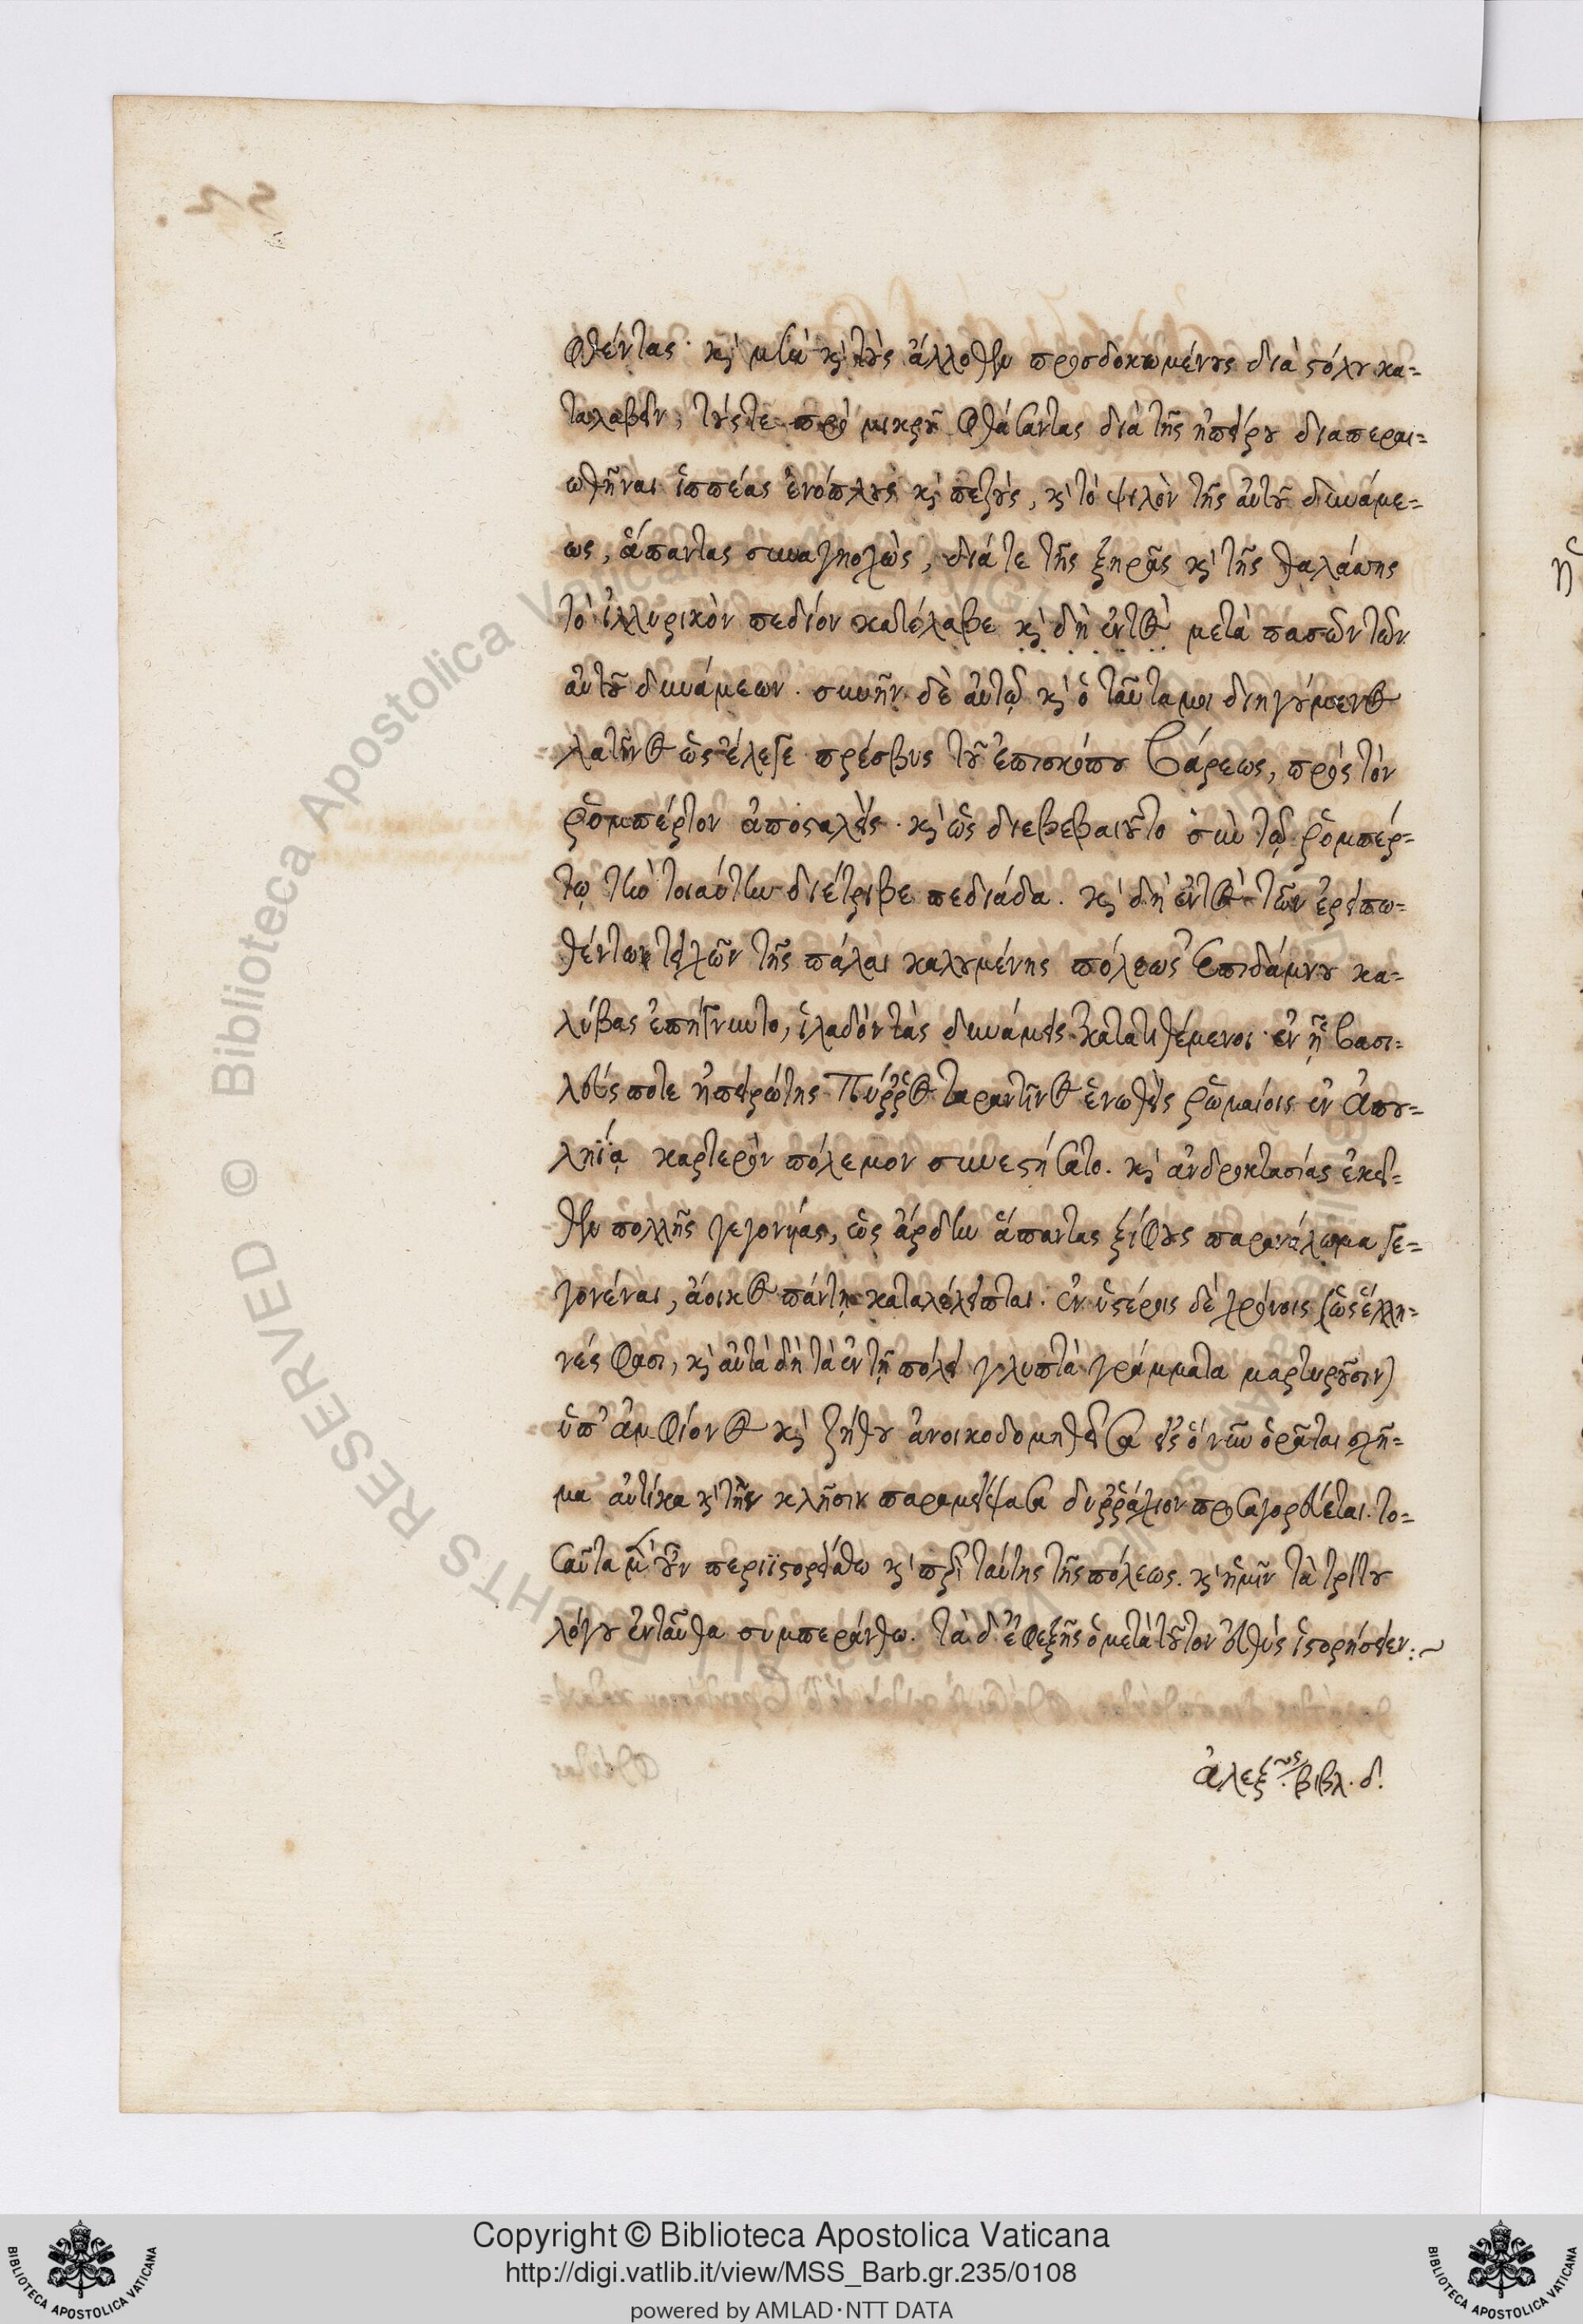 φθέντας· καὶ μετὰ καὶ τοὺς ἄλλοθεν προσδοκωμένους διὰ στόλου κα=
ταλαβεῖν, τούς τε πρὸ μικροῦ φθάσαντας διὰ τῆς ἠπείρου διαπεραι=
ωθῆναι ἱππέας ἐνόπλους καὶ πεζοὺς, καὶ τὸ ψιλὸν τῆς αὐτοῦ δυνάμε=
ως, ἅπαντας συναγηοχὼς, διά τε τῆς ξηρᾶς καὶ τῆς θαλάσσης
τὸ ἰλλυρικὸν πεδίον κατέλαβε καὶ δὴ ἐντὸς μετὰ πασῶν τῶν
αὐτοῦ δυνάμεων. συνῆν δὲ αὐτῷ καὶ ὁ ταῦτα μοι διηγούμενος
λατῖνος ὡς ἔλεγε πρέσβυς τοῦ ἐπισκόπου βάρεως, πρὸς τὸν
ῥομπέρτον ἀποσταλεὶς. καὶ ὡς διεβεβαιοῦτο σὺν τῷ ῥομπέρ=
τῳ τὴν τοιαύτην διέτριβε πεδιάδα. καὶ δὴ ἐντὸς τῶν ἐρειπω=
θέντων τειχῶν τῆς πάλαι καλουμένης πόλεως Ἐπιδάμνου κα=
λύβας ἐπήγνυντο, ἰλαδὸν τὰς δυνάμεις κατατιθέμενοι· ἐν ᾗ βασι=
λεύς ποτε ἠπειρώτης Πύῤῥος ταραντῖνος ἑνωθεὶς ῥωμαίοις ἐν Ἀπου=
ληΐᾳ καρτερὸν πόλεμον συνεστήσατο. καὶ ἀνδροκτασίας ἐκεῖ=
θεν πολλῆς γεγονυίας, ὡς ἄρδην ἅπαντας ξίφους παρανάλωμα γε=
γονέναι, ἄοικος πάντη καταλέλειπται. ἐν ὑστέροις δὲ χρόνοις (ὡς ἕλλη=
νές φασι, καὶ αὐτὰ δὴ τὰ ἐν τῇ πόλει γλυπτὰ γράμματα μαρτυροῦσιν)
ὑπ' ἀμφίονος καὶ ζήθου ἀνοικοδομηθεῖσα εἰς ὃ νῦν ὁρᾶται σχῆ=
μα αὐτίκα καὶ τὴν κλῆσιν παραμείψασα δυῤῥάχιον προσαγορεύεται. το=
σαῦτα μὲν οὖν περιϊστορείσθω καὶ περὶ ταύτης τῆς πόλεως. καὶ ἡμῖν τὰ τρίτου
λόγου ἐνταῦθα συμπεράνθω. τὰ δ' ἐφεξῆς ὁ μετὰ τοῦτον εὐθὺς ἱστορήσειεν:~
ἀλεξ. βιβλ. δ.
Copyright © Biblioteca Apostolica Vaticana
http://digi.vatlib.it/view/MSS_Barb.gr.235/0108
powered by AMLAD·NTT DATA